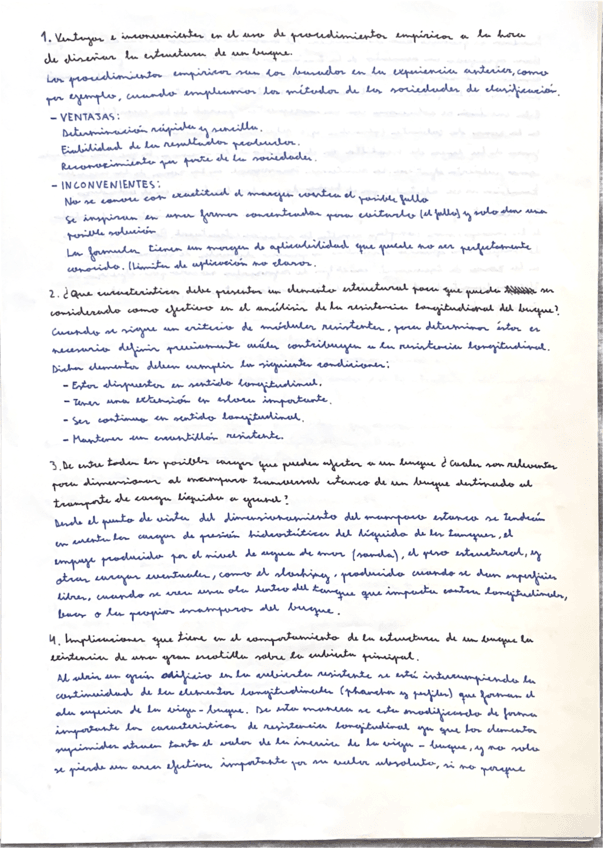 1. Ventajas e inconvenientes en el uso de procedimientos empíricos a la hora
de diseñar la estructura de un buque.
Los procedimientos empíricos son los basados en la experiencia anterior, como
por ejemplo, cuando empleamos los métodos de las sociedades de clasificación.
- VENTAJAS:
Determinación rápida y sencilla.
Fiabilidad de los resultados probados.
Reconocimiento por parte de la sociedades.
- INCONVENIENTES:
No se conoce con exactitud el margen contra el posible fallo
Se inspiran en unas formas concentradas para evitarlo (el fallo) y solo dan una
posible solución
Las formulas tienen un margen de aplicabilidad que puede no ser perfectamente
conocido. (Límites de aplicación no claros.
2. ¿Que características debe presentar un elemento estructural para que pueda ser
considerado como efectivo en el análisis de la resistencia longitudinal del buque?
Cuando se sigue un criterio de módulos resistentes, para determinar éstos es
necesario definir previamente cuáles contribuyen a la resistencia longitudinal.
Dichos elementos deben cumplir las siguientes condiciones:
- Estar dispuestos en sentido longitudinal.
- Tener una extensión en eslora importante.
- Ser continuo en sentido longitudinal.
- Mantener un escantillón resistente.
3. De entre todas las posibles cargas que pueden afectar a un buque ¿Cuales son relevantes
para dimensionar el mamparo transversal estanco de un buque destinado al
transporte de carga líquida a granel?
Desde el punto de vista del dimensionamiento del mamparo estanco se tendrán
en cuenta las cargas de presión hidrostáticas del líquido de los tanques, el
empuje producido por el nivel de agua de mar (sonda), el peso estructural, y
otras cargas eventuales, como el sloshing, producido cuando se dan superficies
libres, cuando se crea una ola dentro del tanque que impacta contra longitudinales,
baos o los propios mamparos del buque.
4. Implicaciones que tiene en el comportamiento de la estructura de un buque la
existencia de una gran escotilla sobre la cubierta principal.
Al abrir un gran orificio en la cubierta resistente se está interrumpiendo la
continuidad de los elementos longitudinales (planchas y perfiles) que forman el
ala superior de la viga-buque. De esta manera se esta modificando de forma
importante las características de resistencia longitudinal ya que los elementos
suprimidos elevan tanto el valor de la inercia de la viga-buque, y no solo
se pierde un area efectiva importante por su valor absoluto, si no porque